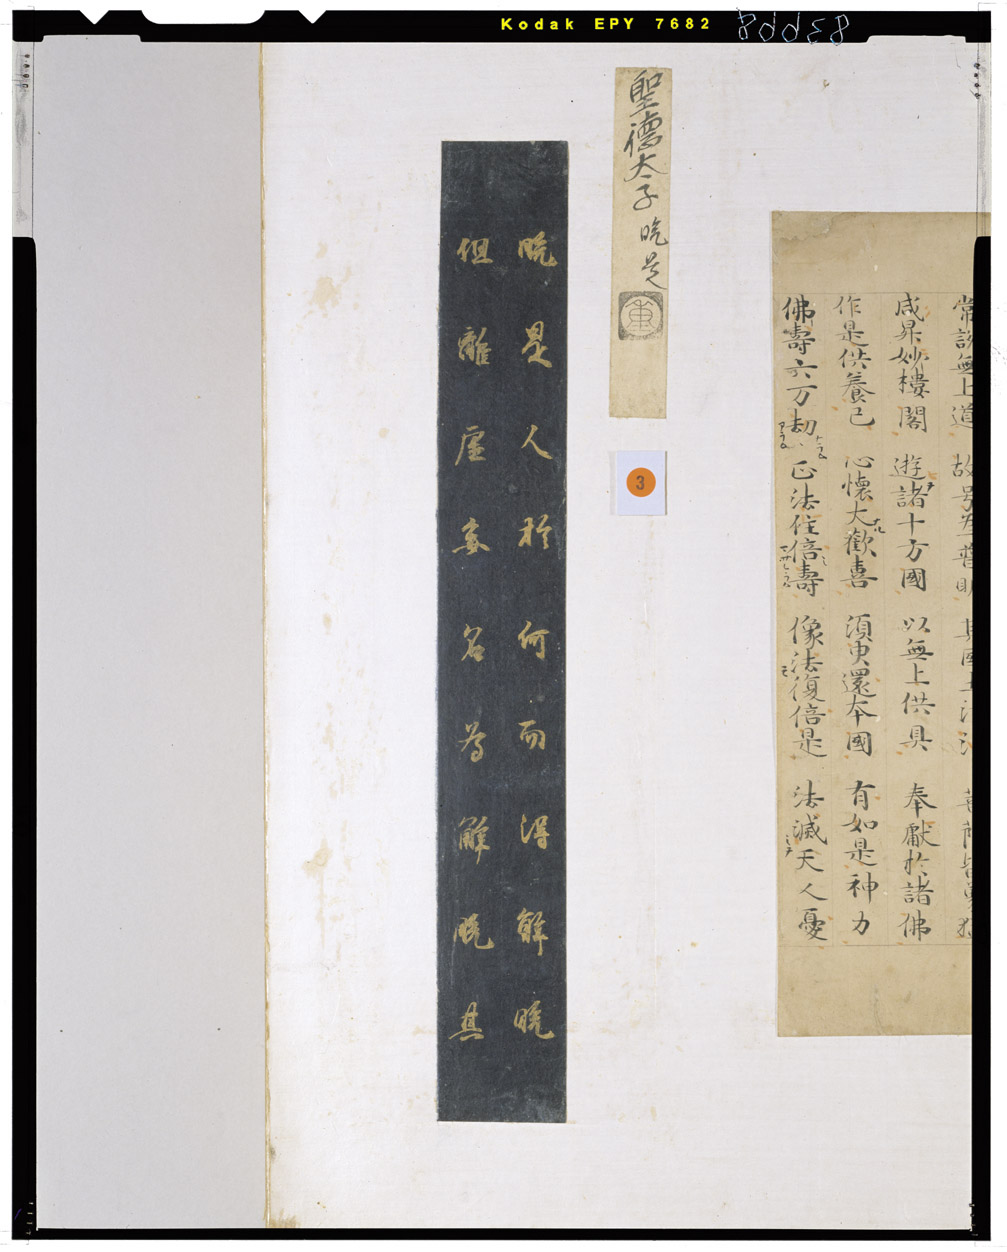 Kodak EPY 7682
常説無上道 故号
咸昇妙樓閣 遊諸十方國 以無上供具 奉獻於諸佛
作是供養已 心懷大歡喜 須臾還本國 有如是神力
佛壽六万劫 正法住倍壽 像法復倍是 法滅天人憂
聖德太子 脱是
3
脱是人於何而得解脱
但離虛妄名為解脱其